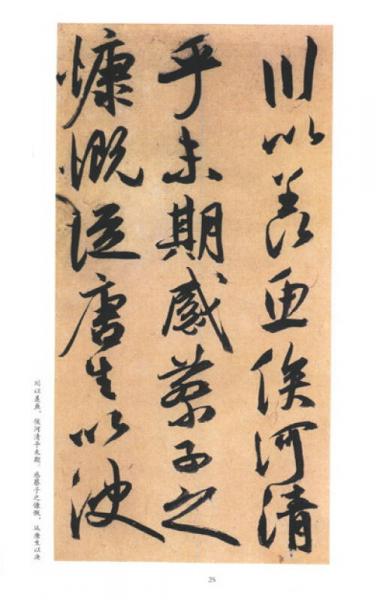 川以羨魚俟河清
乎未期感蔡子之
慷慨從唐生以決
川以羡鱼。俟河清乎未期。感蔡子之慷慨，从唐生以决